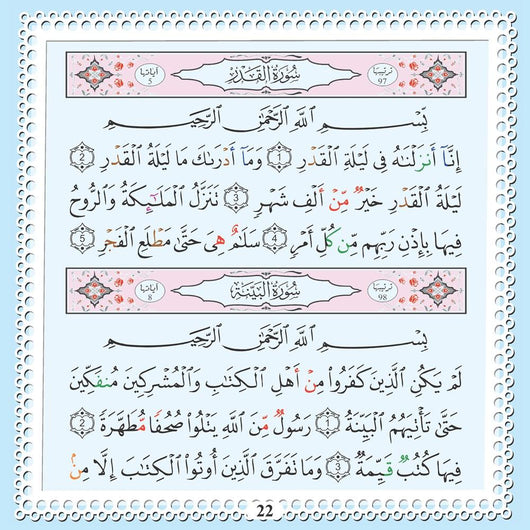 ترتيبها 97 سُورَةُ القَدْرِ آياتها 5
بِسْمِ اللَّهِ الرَّحْمَٰنِ الرَّحِيمِ
إِنَّا أَنزَلْنَاهُ فِي لَيْلَةِ الْقَدْرِ (1) وَمَا أَدْرَاكَ مَا لَيْلَةُ الْقَدْرِ (2)
لَيْلَةُ الْقَدْرِ خَيْرٌ مِّنْ أَلْفِ شَهْرٍ (3) تَنَزَّلُ الْمَلَائِكَةُ وَالرُّوحُ
فِيهَا بِإِذْنِ رَبِّهِم مِّن كُلِّ أَمْرٍ (4) سَلَامٌ هِيَ حَتَّىٰ مَطْلَعِ الْفَجْرِ (5)
ترتيبها 98 سُورَةُ البَيِّنَةِ آياتها 8
بِسْمِ اللَّهِ الرَّحْمَٰنِ الرَّحِيمِ
لَمْ يَكُنِ الَّذِينَ كَفَرُوا مِنْ أَهْلِ الْكِتَابِ وَالْمُشْرِكِينَ مُنفَكِّينَ
حَتَّىٰ تَأْتِيَهُمُ الْبَيِّنَةُ (1) رَسُولٌ مِّنَ اللَّهِ يَتْلُوا صُحُفًا مُّطَهَّرَةً (2)
فِيهَا كُتُبٌ قَيِّمَةٌ (3) وَمَا تَفَرَّقَ الَّذِينَ أُوتُوا الْكِتَابَ إِلَّا مِن
22